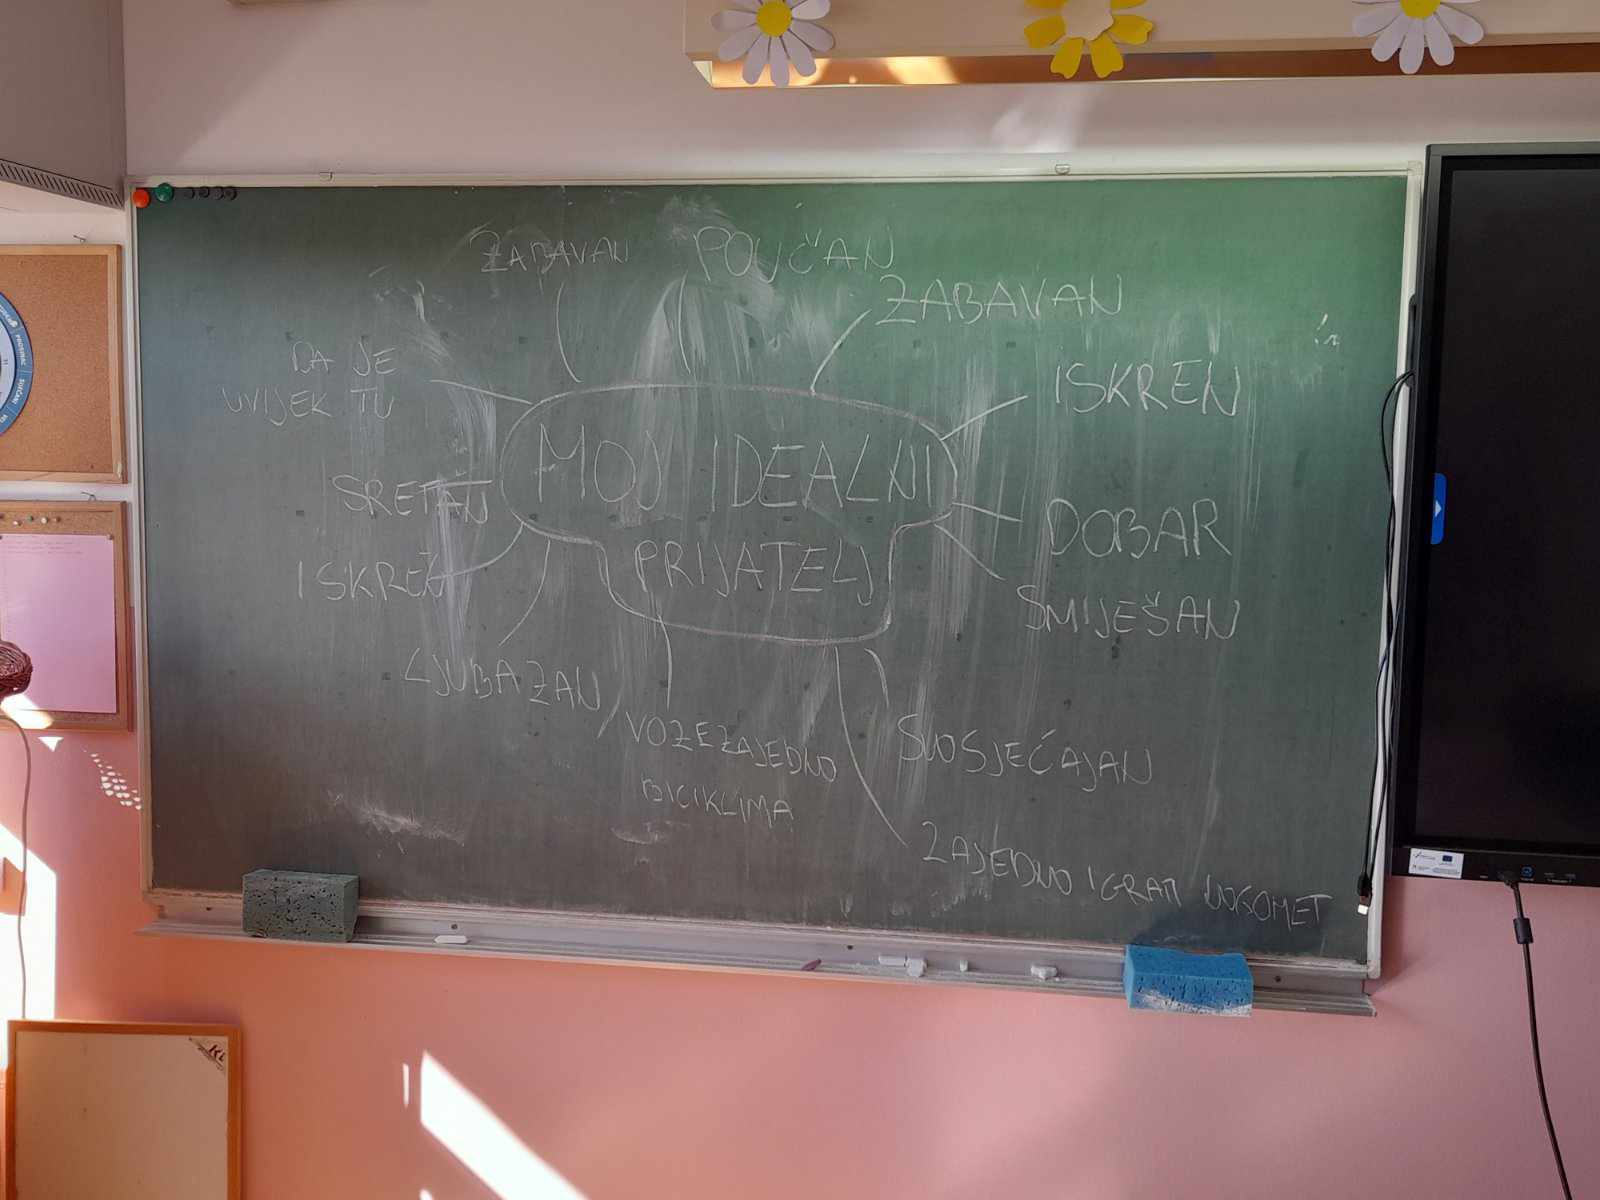 ZABAVAN
POUČAN
ZABAVAN
DA JE
UVIJEK TU
ISKREN
MOJ IDEALNI
PRIJATELJ
SRETAN
DOBAR
ISKREN
SMIJEŠAN
LJUBAZAN
VOZE ZAJEDNO
BICIKLIMA
SUOSJEĆAJAN
ZAJEDNO IGRATI
PROSINAC
SIJEČANJ